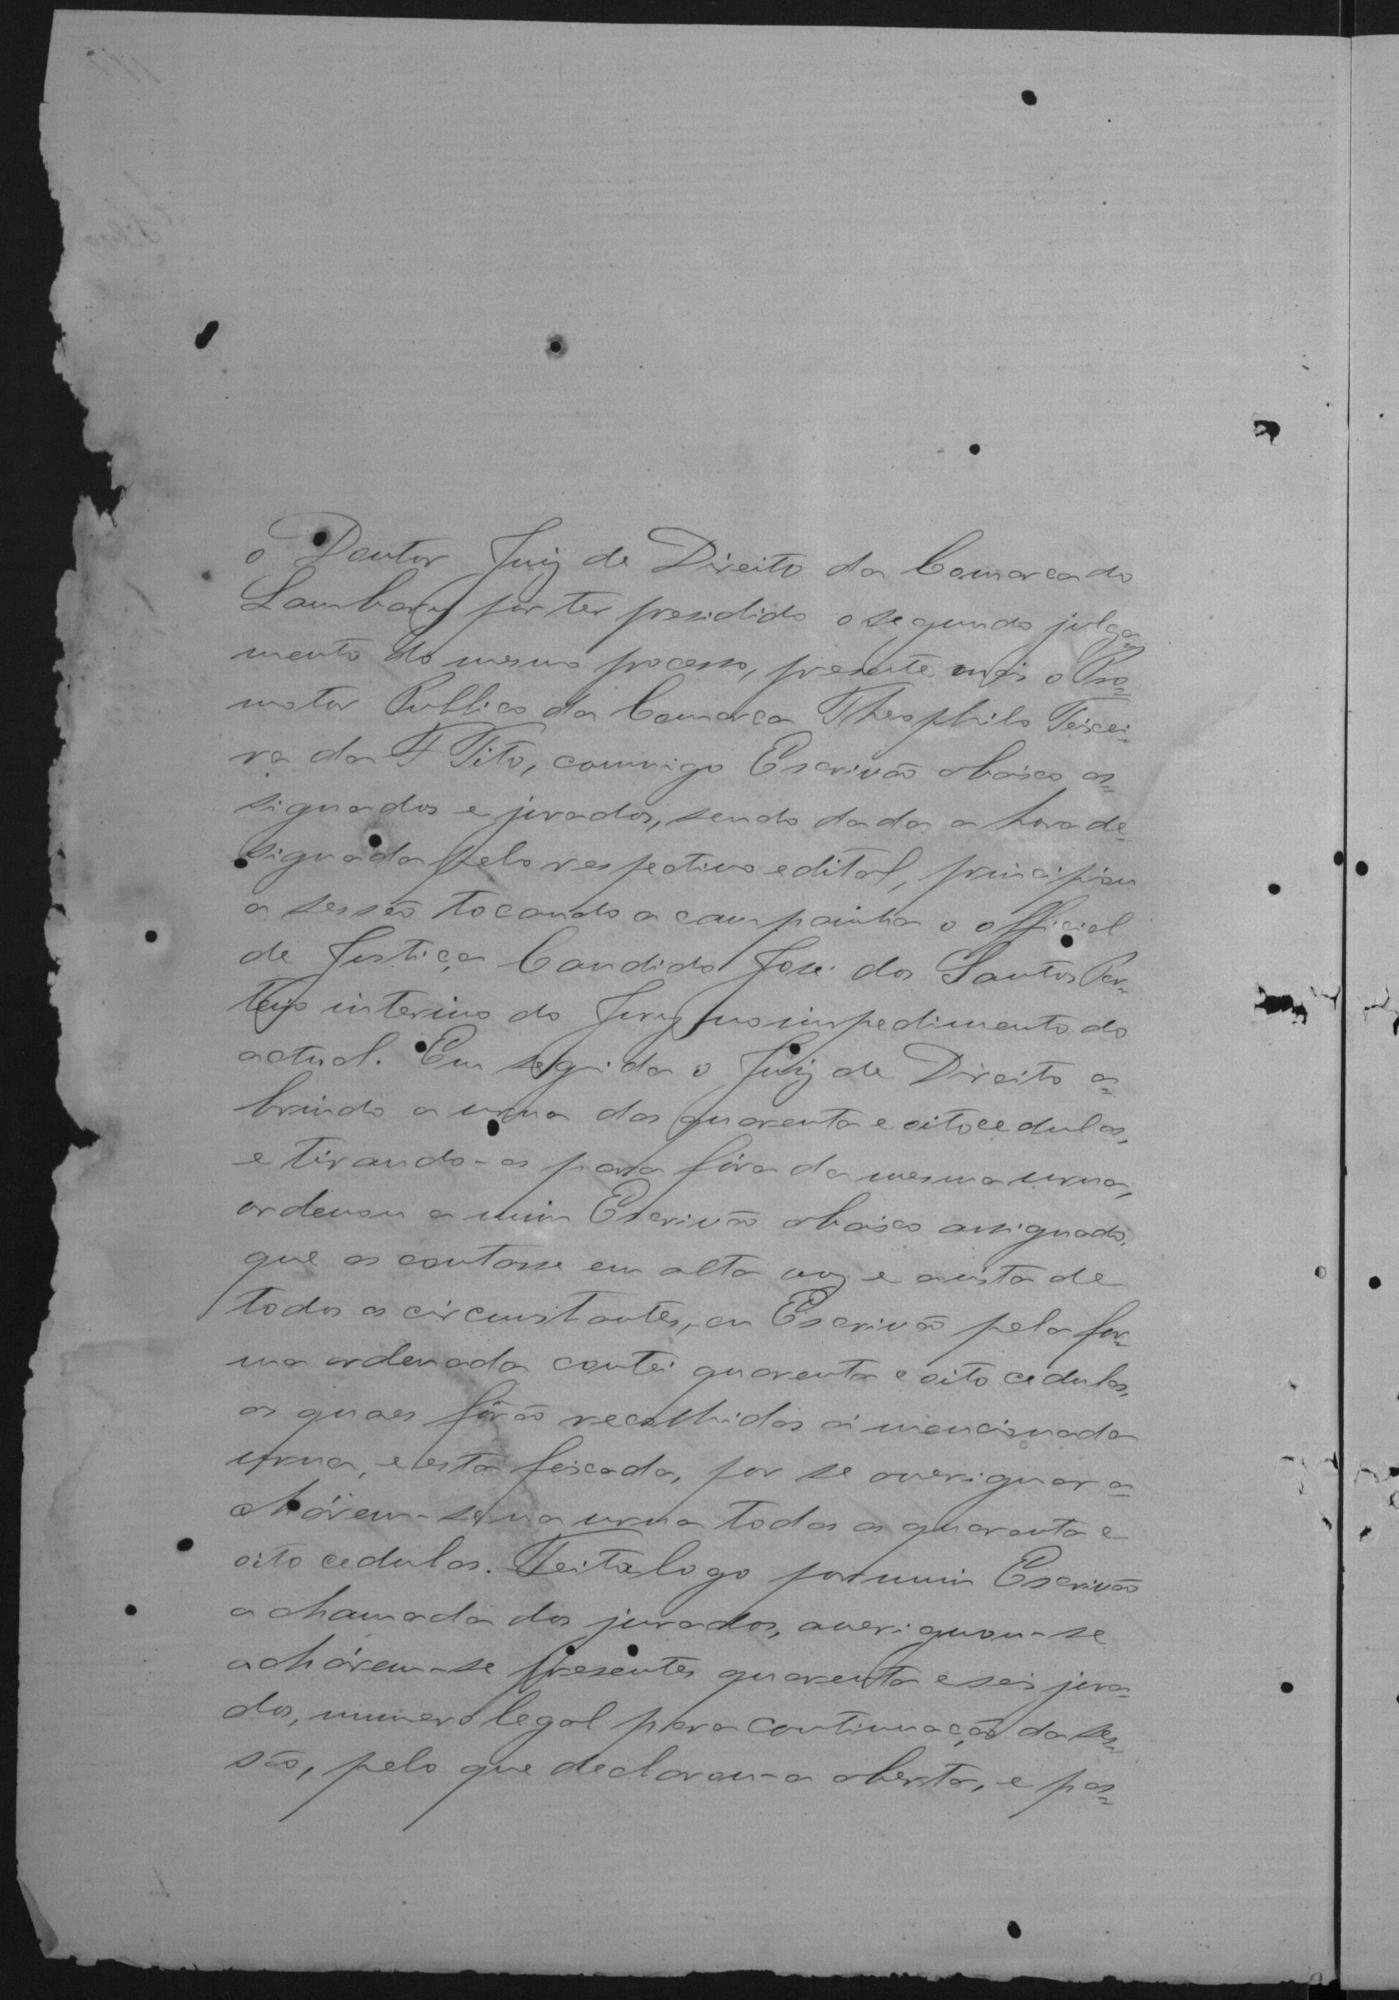 o Doutor Juiz de Direito da Comarca do
Lambary por ter presidido o segundo julga=
mento do mesmo processo, presente mais o Pro=
motor Publico da Comarca Theophilo Teixei=
ra da F Tito, commigo Escrivão abaixo as=
signados e jurados, sendo dada a hora de=
signada pelo respectivo edital, principiou
a sessão tocando a campainha o official
de Justiça Candido José dos Santos Por=
teiro interino do Jury no impedimento do
actual. Em seguida o Juiz de Direito a=
brindo a urna das quarenta e oito cedulas,
e tirando-as para fóra da mesma urna,
ordenou a mim Escrivão abaixo assignado,
que as contasse em alta voz e a vista de
todos os circunstantes, eu Escrivão pela for=
ma ordenada contei quarenta e oito cedulas,
as quaes fôrão recolhidas á mencionada
urna, e esta feixada, por se averiguar a=
chárem-se na urna todas as quarenta e
oito cedulas. Feita logo por mim Escrivão
a chamada dos jurados, averiguou-se
achárem-se presentes quarenta e seis jura=
dos, numero legal para continuação da ses=
são, pelo que declarou-a aberta, e pas=